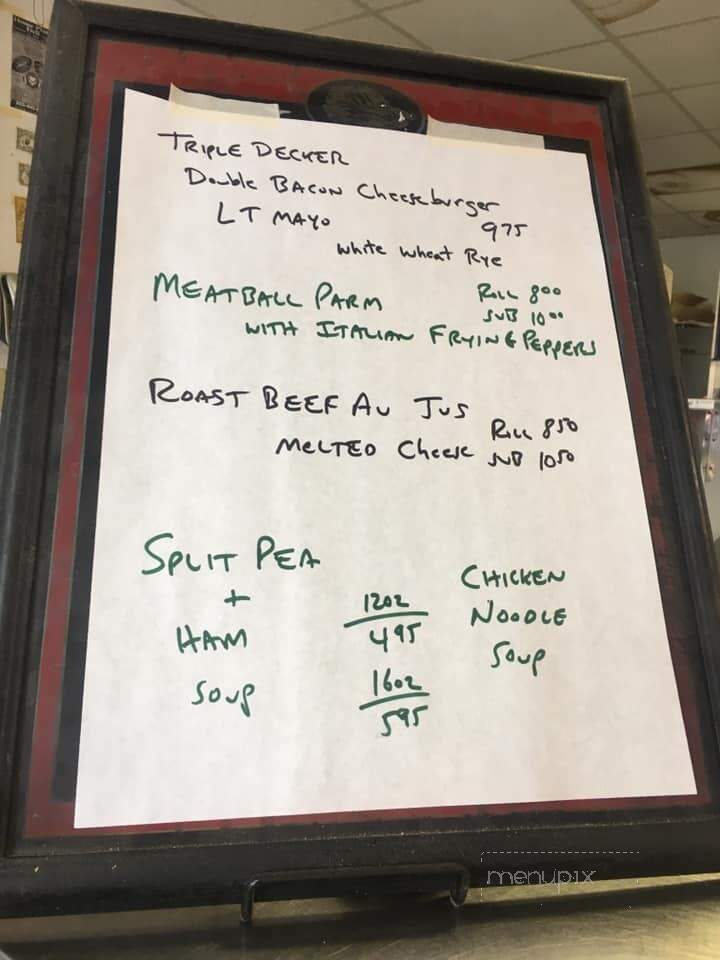 TRIPLE DECKER
Double BACON Cheeseburger
LT MAYO 975
white wheat Rye
MEATBALL PARM Roll 800
SUB 1000
WITH ITALIAN FRYING PEPPERS
ROAST BEEF AU JUS
Roll 850
MELTED Cheese SUB 1050
SPLIT PEA
+
HAM
SOUP
12oz
495
16oz
595
CHICKEN
NOODLE
SOUP
menupix